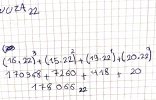 22
(16.22³)+(15.22²)+(19.22¹)+(20.22⁰)
170368 + 7260 + 418 + 20
178066 22